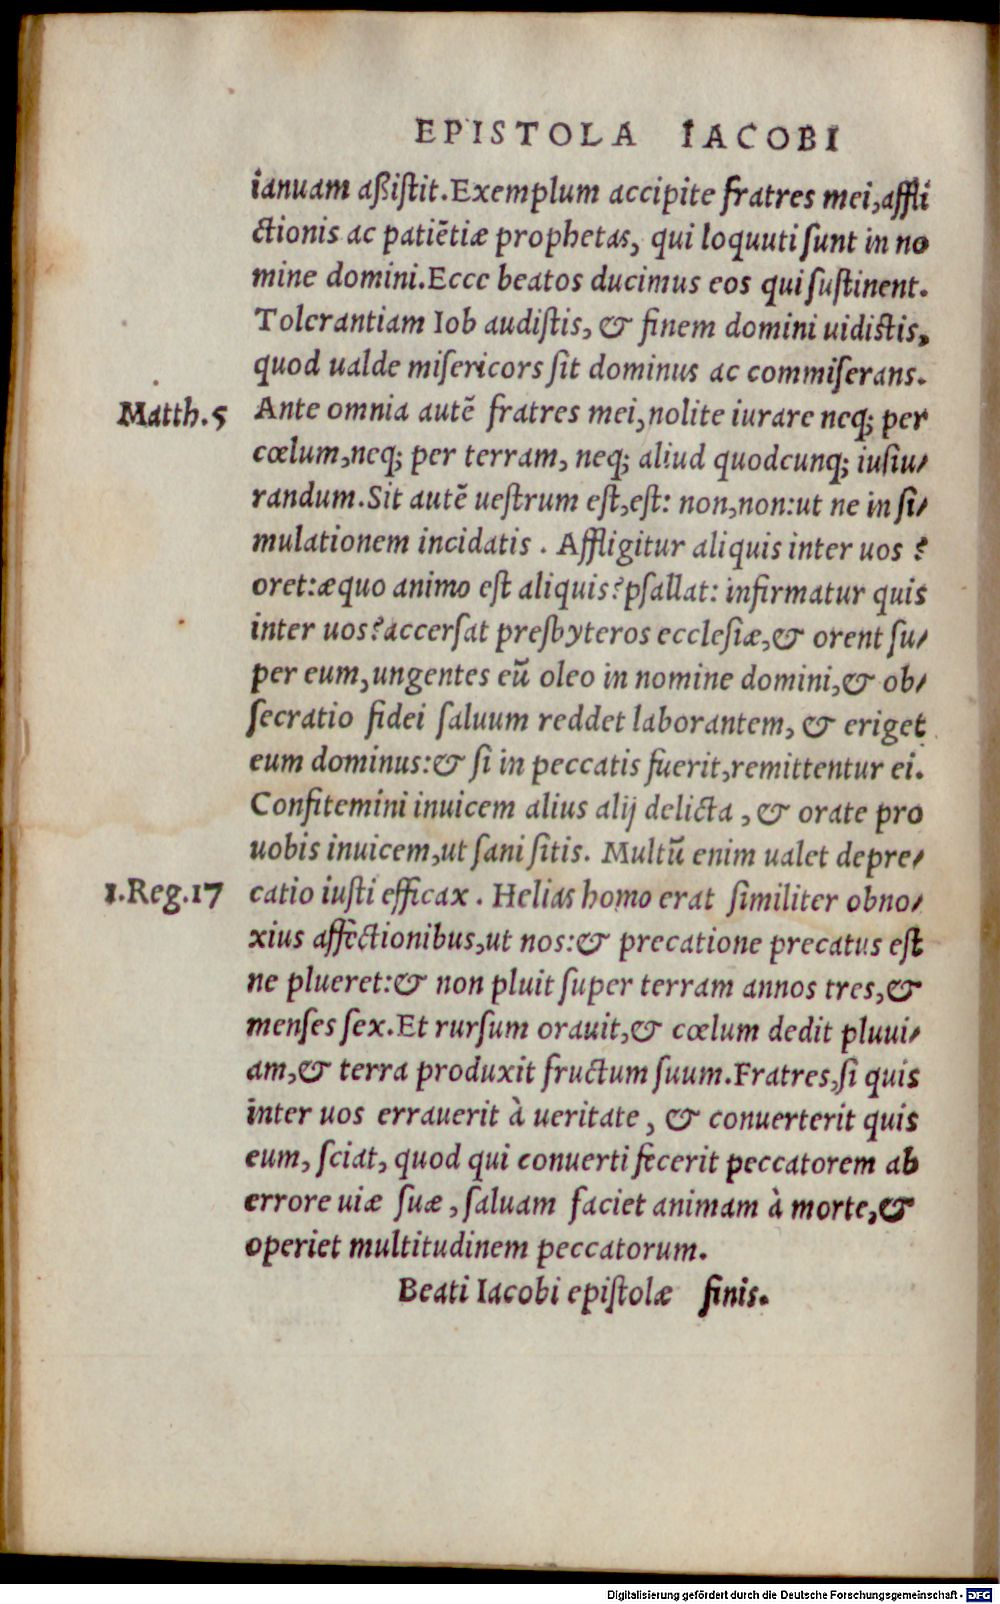 EPISTOLA IACOBI
ianuam aßiſtit. Exemplum accipite fratres mei, affli
ctionis ac patiẽtiæ prophetas, qui loquuti ſunt in no
mine domini. Ecce beatos ducimus eos qui ſuſtinent.
Tolerantiam Iob audiſtis, & finem domini uidiſtis,
quod ualde miſericors ſit dominus ac commiſerans.
Matth.5 Ante omnia autẽ fratres mei, nolite iurare neq; per
cœlum, neq; per terram, neq; aliud quodcunq; iuſiu/
randum. Sit autẽ ueſtrum eſt, eſt: non, non: ut ne in ſi/
mulationem incidatis. Affligitur aliquis inter uos ?
oret: æquo animo eſt aliquis? pſallat: infirmatur quis
inter uos? accerſat presbyteros eccleſiæ, & orent ſu/
per eum, ungentes eũ oleo in nomine domini, & ob/
ſecratio fidei ſaluum reddet laborantem, & eriget
eum dominus: & ſi in peccatis fuerit, remittentur ei.
Confitemini inuicem alius alij delicta, & orate pro
uobis inuicem, ut ſani ſitis. Multũ enim ualet depre/
1.Reg.17 catio iuſti efficax. Helias homo erat ſimiliter obno/
xius affectionibus, ut nos: & precatione precatus eſt
ne plueret: & non pluit ſuper terram annos tres, &
menſes ſex. Et rurſum orauit, & cœlum dedit pluui/
am, & terra produxit fructum ſuum. Fratres, ſi quis
inter uos errauerit à ueritate, & conuerterit quis
eum, ſciat, quod qui conuerti fecerit peccatorem ab
errore uiæ ſuæ, ſaluam faciet animam à morte, &
operiet multitudinem peccatorum.
Beati Iacobi epiſtolæ finis.
Digitalisierung gefördert durch die Deutsche Forschungsgemeinschaft - DFG